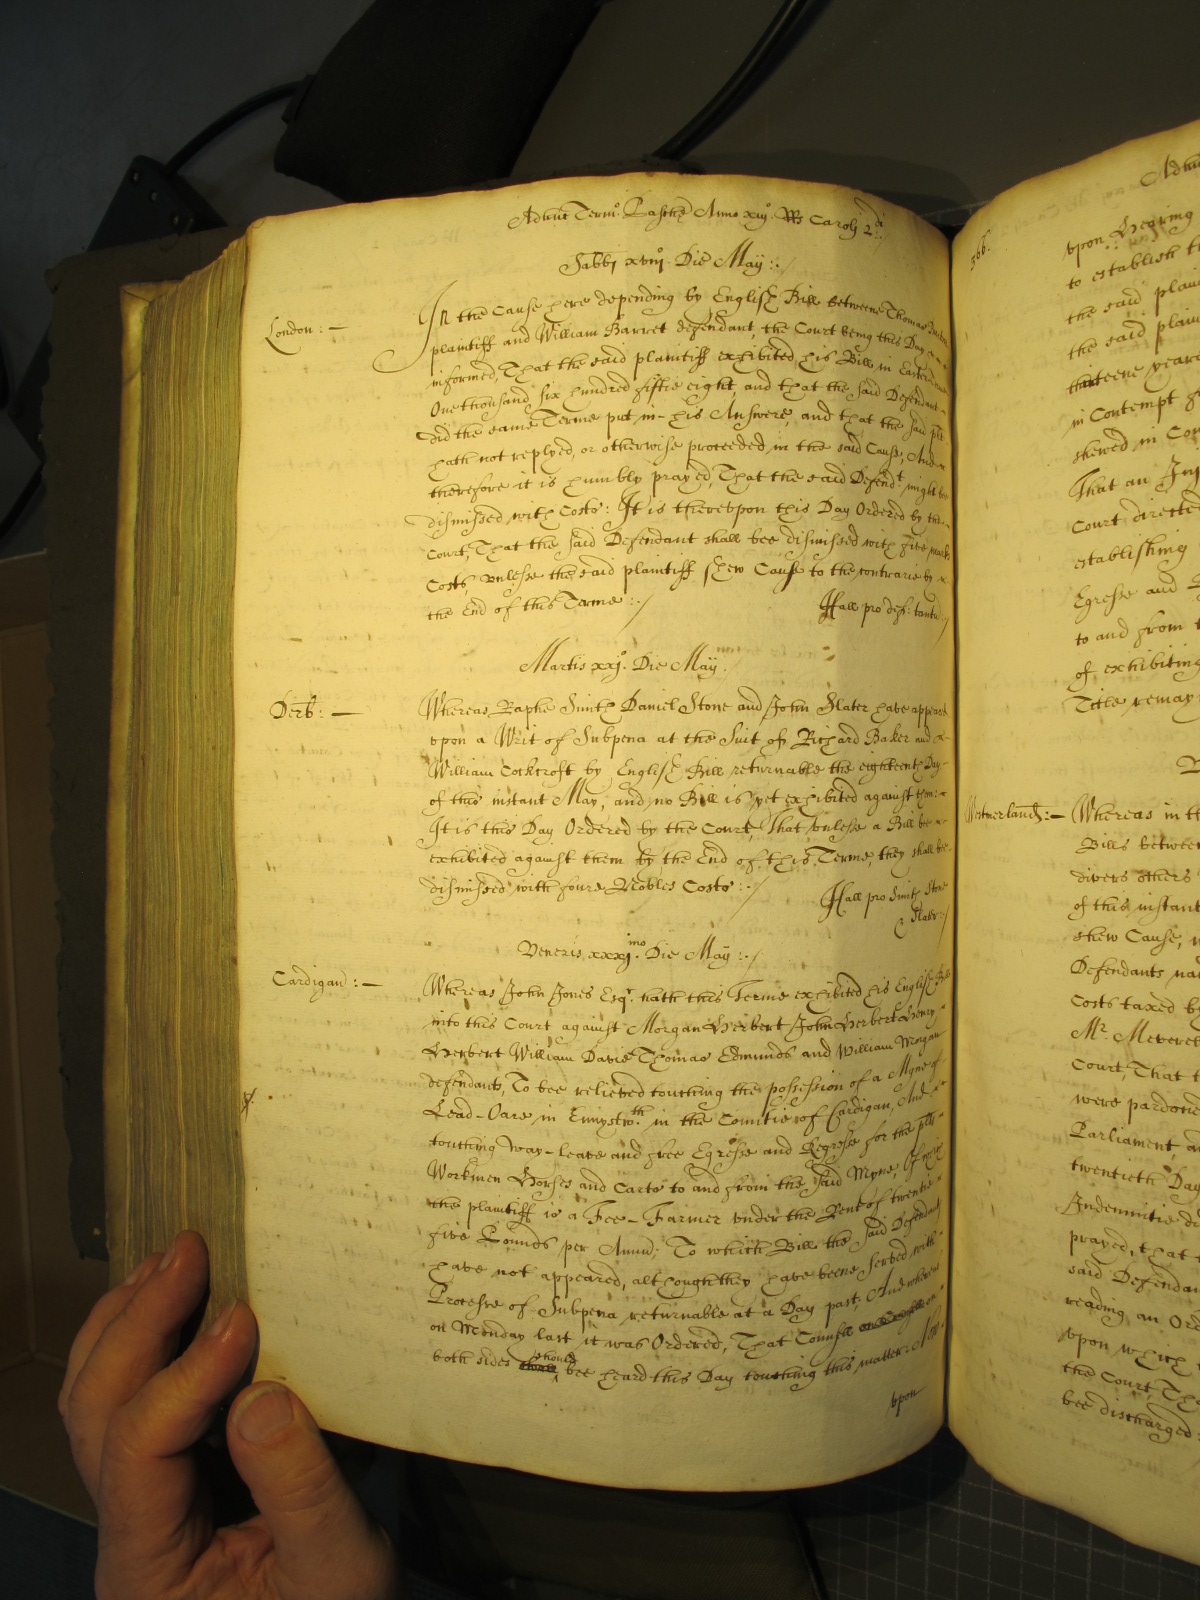 Adhuc Term. Pasche Anno xiijº. RRs Caroli 2di.
Sabbi xviijº. Die May :./
London : —
In the Cause here depending by English Bill betweene Thomas
plaintiff and William Barret defendant, the Court being this Day
informed, That the said plaintiff exhibited his Bill in Easter
One thousand six hundred fiftie eight, and that the said Defendant
did the same Terme put in his Answere, and that the said plt
hath not replyed, or otherwise proceeded in the said Cause, And
therefore it is humbly prayed, That the said Defendt might bee
dismissed with Costs : It is thereupon this Day Ordered by the
Court, That the said Defendant shall bee dismissed with five marks
Costs, unlesse the said plaintiff shew Cause to the contrarie by
the End of this Terme :./
Hall pro def: tantu:/
Martis xxjº. Die May.
Derb: —
Whereas Raphe Smith Daniel Stone and John Slater have appeared
upon a Writ of Subpena at the Suit of Richard Baker and
William Cockcroft by English Bill returnable the eighteenth Day
of this instant May, and no Bill is yet exhibited against them :
It is this Day Ordered by the Court, That unlesse a Bill bee
exhibited against them by the End of this Terme, they shall bee
dismissed with foure Nobles Costs :./
Hall pro Smith Stone
& Slater :/
Veneris xxxjmo. Die May :./
Cardigan : —
Whereas John Jones Esqr. hath this Terme exhibited his English Bill
into this Court against Morgan Herbert John Herbert Henry
Herbert William Davis Thomas Edmunds and William Morgan
defendants, To bee relieved touching the possession of a Myne of
Lead-Oare in Cumystwth. in the Countie of Cardigan, And
touching way-leave and free Egresse and Regresse for the plts
Workmen Horses and Carts to and from the said Myne, Of which
the plaintiff is a Fee-Farmer under the Rent of twentie
five Pounds per Annu; To which Bill the said Defendants
have not appeared, although they have beene served with
Processe of Subpena returnable at a Day past, And whereas
on Monday last it was Ordered, That Counsell on
both sides should bee heard this Day touching this matter : Now
upon
366.
Adhuc
upon Hearing
to establish
the said plain
the said plain
thirteene yeares
in Contempt
shewed in Cou
That an Inj
Court directed
establishing
Egresse and
to and from
of exhibiting
Title remay
Westmerland : —
Whereas in th
Bills between
divers others
of this instant
shew Cause,
Defendants
Costs taxed by
Mr. Meverel
Court, That
were pardoned
Parliament
twentieth Day
Indemnitie
prayed, that
said Defendan
reading an Ord
upon which
the Court, Tha
bee discharged